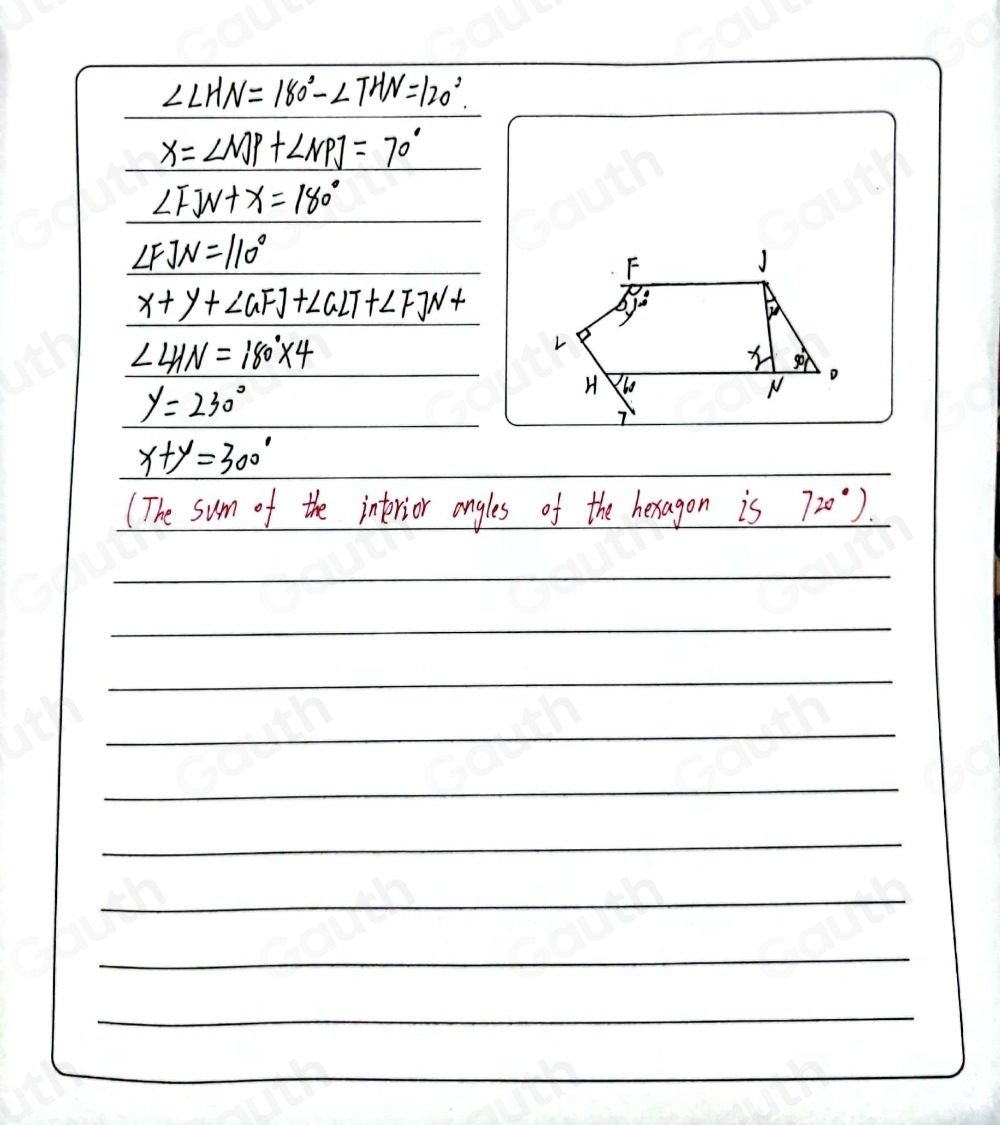 ∠LHN = 180° - ∠THN = 120°.
x = ∠NJP + ∠NPJ = 70°
∠FJN + x = 180°
∠FJN = 110°
x + y + ∠GFJ + ∠GLT + ∠FJN +
∠LHN = 180° × 4
y = 230°
x + y = 300°
(The sum of the interior angles of the hexagon is 720°).
F
J
y
L
x
50°
H
60
N
P
T
Gauth